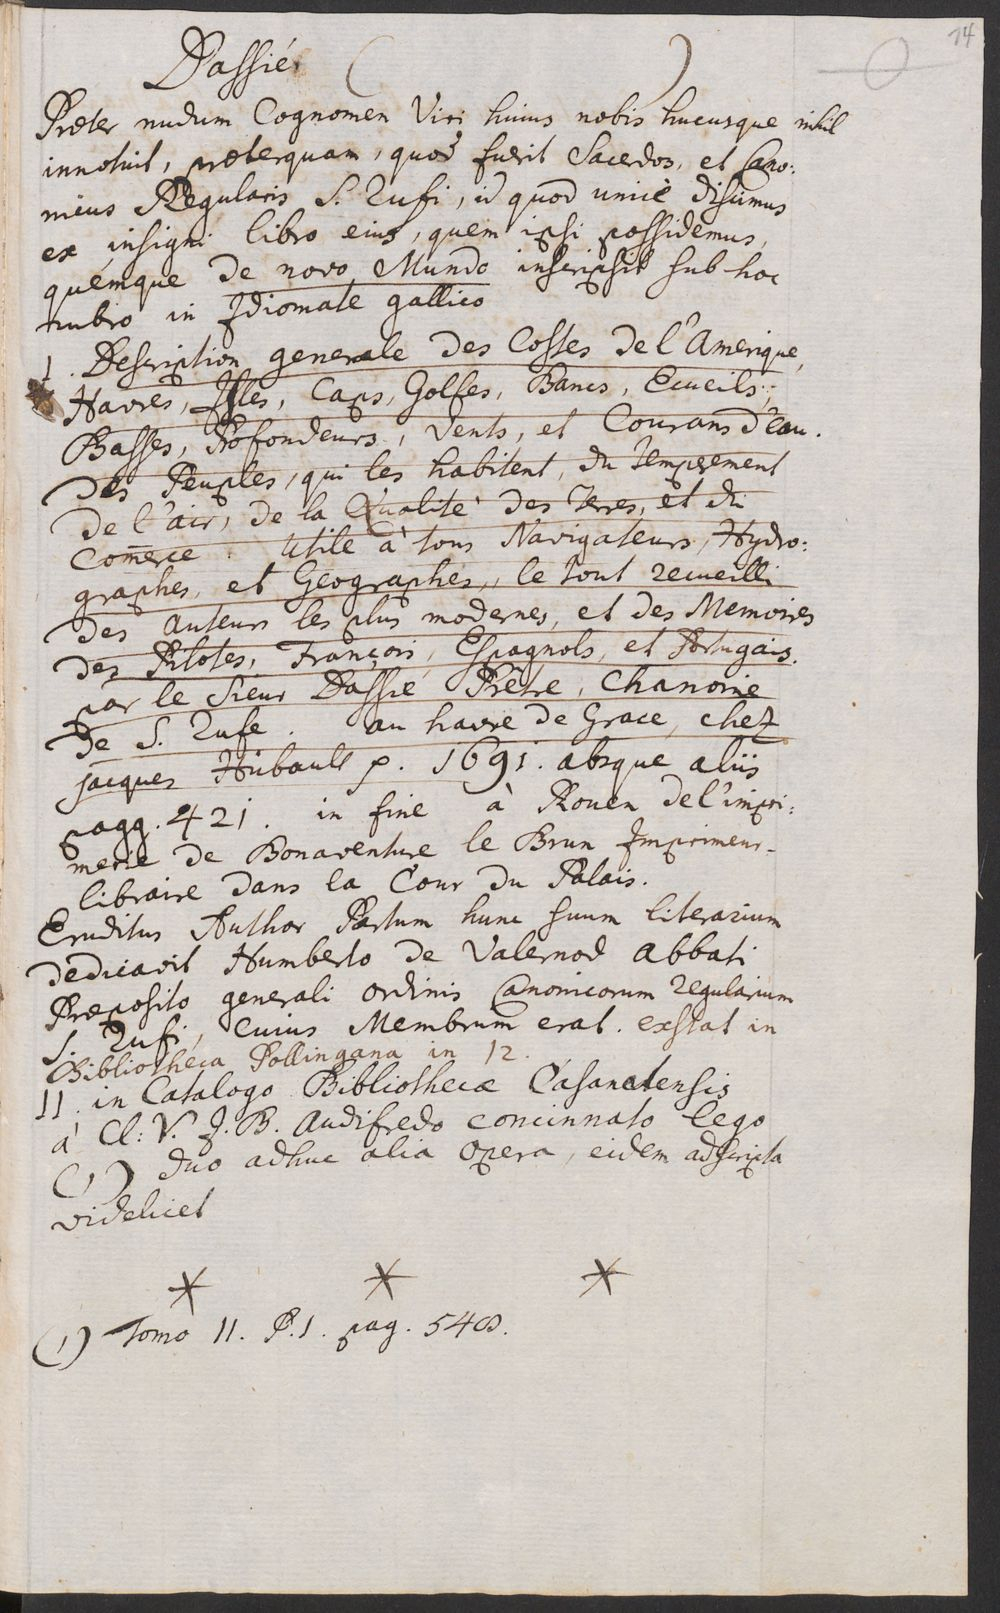 14
Dassié ( )
Præter nudum Cognomen Viri huius nobis hucusque nihil
innotuit, præterquam, quod fuerit Sacerdos, et Cano:
nicus Regularis S. Rufi, id quod unicè discimus
ex insigni libro eius, quem ipsi possidemus,
quémque de novo Mundo inscripsit sub hoc
rubro in Idiomate gallico
I. Description generale des Costes de l'Amerique,
Havres, Isles, Caps, Golfes, Bancs, Ecueils,
Basses, Profondeurs, Vents, et Courans d'eau.
Des Peuples, qui les habitent, du Temperement
de l'air, de la Qualité des Terres, et du
Com̄erce. Utile à tous Navigateurs, Hydro:
graphes, et Geographes, le tout recueilli
des auteurs les plus modernes, et des Memoires
des Pilotes, François, Espagnols, et Portugais.
par le Sieur Dassié Prêtre, Chanoine
de S. Rufe. au havre de Grace, chez
jacques Hubault p. 1691. absque aliis
pagg. 421. in fine à Rouen de l'impri:
merie de Bonaventure le Brun Imprimeur-
libraire dans la Cour du Palais.
Eruditus Author Partum hunc suum literarium
dedicavit Humberto de Valernod abbati
Præposito generali ordinis Canonicorum Regularium
S. Rufi, cuius Membrum erat. exstat in
Bibliotheca Pollingana in 12.
II. in Catalogo Bibliothecæ Casanatensis
à Cl: V. J. B. Audifredo concinnato lego
(1) duo adhuc alia opera, eidem adscripta
videlicet
* * *
(1) Tomo II. P. I. pag. 548.